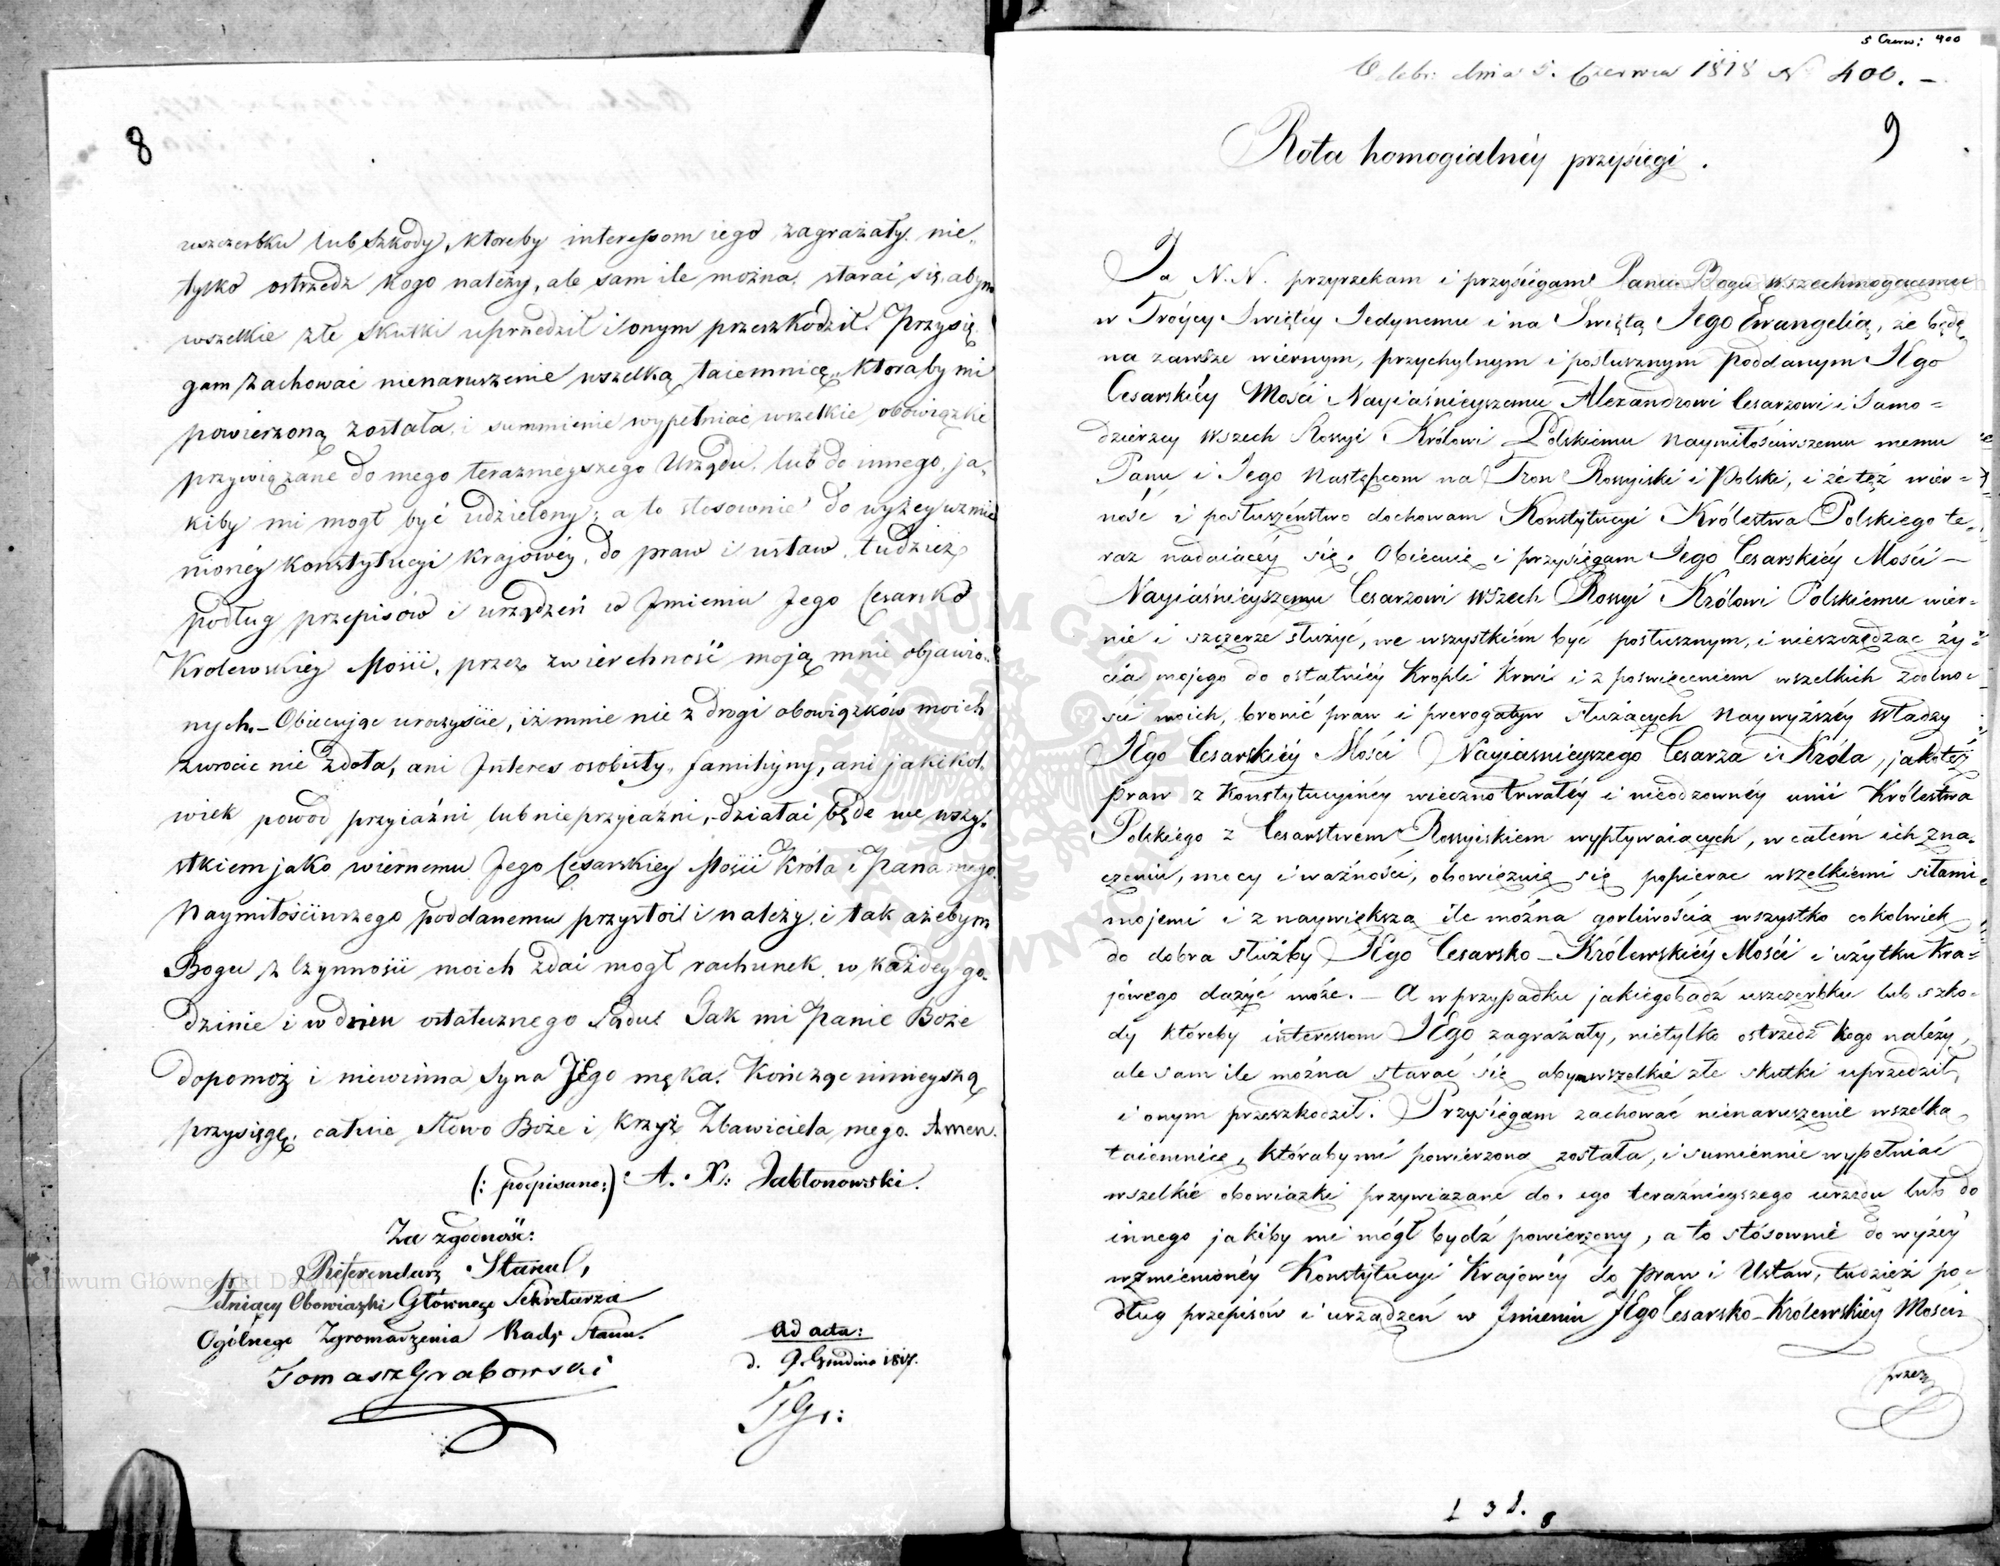 8
uszczerbku lub szkody, ktoreby interessom iego zagrażały. nie„
tylko ostrzedz kogo należy, ale sam ile można, starać się, abym
wszelkie złe skutki uprzedził i onym przeszkodził. Przysię„
gam zachować nienaruszenie wszelką taiemnicę, ktoraby mi
powierzoną została, i summienie wypełniać wszelkie obowiązki
przywiązane do mego teraznieyszego Urzędu, lub do innego, ja„
kiby mi mogł być udzielony; a to stosownie do wyżey wzmie
nionéy Konstytucyi Krajowéy, do praw i ustaw, tudzież
podług przepisów i urządzeń w Jmieniu Jego Cesarsko
Krolewskiey Mości, przez zwierchność moją mnie objawio„
nych. – Obiecując uroczyście, iż mnie nie z drogi obowiązków moich
zwrocic nie zdoła, ani Interes osobisty, familiyny, ani jakikol„
wiek powod przyiaźni lub nieprzyiaźni, działać będe we wszy„
stkiem jako wiernemu Jego Cesarskiey Mości Króla i Pana mego
Naymiłościwszego poddanemu przystoi i należy, i tak ażebym
Bogu z Czynności moich zdać mogł rachunek w każdey go„
dzinie i w dniu ostatecznego Sądu. Tak mi Panie Boże
dopomoż i niewinna Syna JEgo męka. Kończąc ninieyszą
przysięgę, całuie Słowo Boże i Krzyż Zbawiciela mego. Amen.
(: podpisano:) A. X: Jabłonowski.
Za zgodność:
Referendarz Stanu,
Pełniący Obowiązki Głównego Sekretarza
Ogólnego Zgromadzenia Rady Stanu.
Tomasz Grabowski
Ad acta:
d. 9. Grudnia 1817.
TGr:
5 Czerw: 400
Odebr: dnia 5. Czerwca 1818 N 400. –
9
Rota homogialnéy przysięgi.
Ja N. N. przyrzekam i przysięgam Panu Bogu wszechmogącemu
w Tróycy Swiętey Jedynemu i na Swiętą Jego Ewangelią, że będę
na zawsze wiernym, przychylnym i posłusznym poddanym JEgo
Cesarskiéy Mości Nayiaśnieyszemu Alexandrowi Cesarzowi i Samo=
dzierzcy wszech Rossyi Królowi Polskiemu naymiłościwszemu memu
Panu i Jego Następcom na Tron Rossyiski i Polski, i że też wier=
ność i posłuszeństwo dochowam Konstytucyi Królestwa Polskiego te=
raz nadaiącéy się. Obiecuię i przysięgam Jego Cesarskiéy Mości –
Nayiaśnieyszemu Cesarzowi wszech Rossyi Królowi Polskiemu wier=
nie i szczerze służyć, we wszystkiém być posłusznym, i nieszczędząc ży=
cia mojego do ostatniéy kropli krwi i z poswięceniem wszelkich zdolno=
ści moich, bronić praw i prerogatyw służących Naywyższéy Władzy
JEgo Cesarskiéy Mości Nayiasnieyszego Cesarza i Króla, jakoteż
praw z Konstytucyinéy wiecznotrwałéy i nieodzownéy unii Królestwa
Polskiego z Cesarstwem Rossyiskiem wypływaiących, w całem ich zna=
czeniu, mocy i ważności, obowięzuię się popierac wszelkiemi siłami
mojemi i z naywiększą ile można gorliwością wszystko cokolwiek
do dobra służby JEgo Cesarsko – Królewskiéy Mości i użytku kra=
jowego dążyć może. – A w przypadku jakiegobądź uszczerbku lub szko=
dy któreby interessom JEgo zagrażały, nietylko ostrzedz kogo należy,
ale sam ile można starać się abym wszelkie złe skutki uprzedził,
i onym przeszkodził. Przysięgam zachować nienaruszenie wszelką
taiemnicę, którabymi powierzoną została, i sumiennie wypełniać
wszelkie obowiązki przywiązane do ego teraźnieyszego urzędu lub do
innego jakiby mi mógł bydź powierzony, a to stósownie do wyżéy
wzmienionéy Konstytucyi Krajowéy do praw i Ustaw, tudzież po=
dług przepisów i urządzeń w Jmieniu JEgo Cesarsko – Królewskiéy Mości
przez